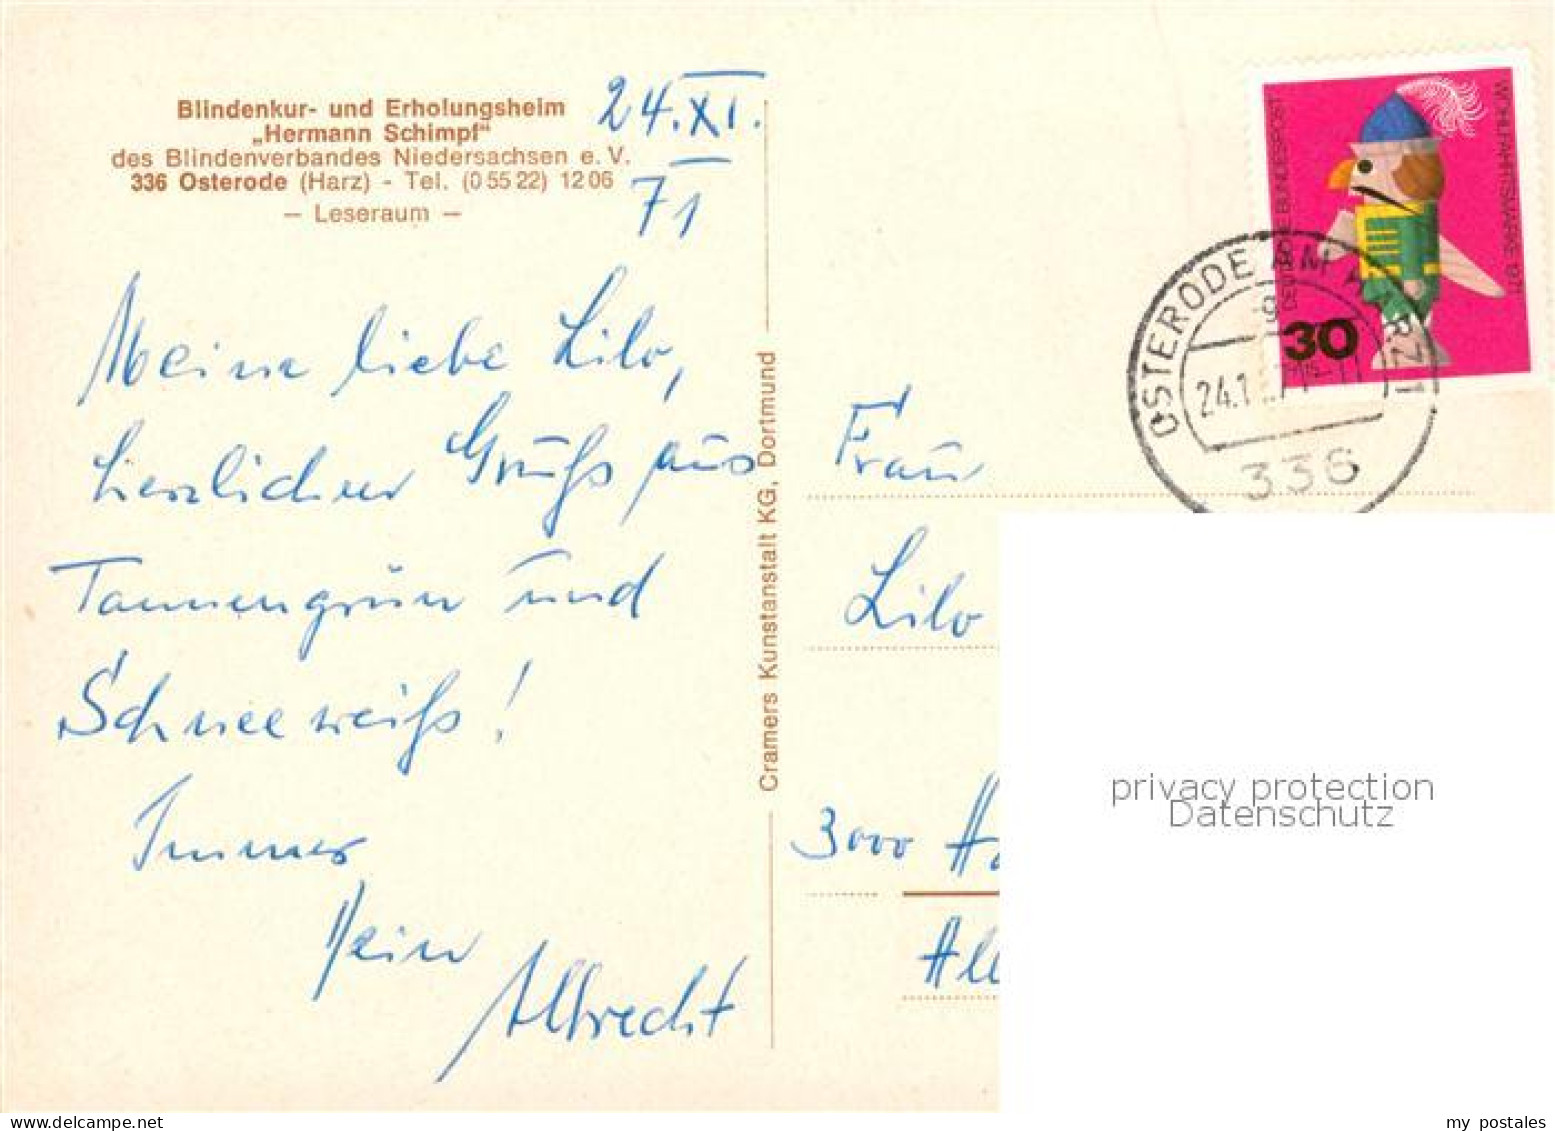 Blindenkur- und Erholungsheim
„Hermann Schimpf“
des Blindenverbandes Niedersachsen e. V.
336 Osterode (Harz) - Tel. (0 55 22) 12 06
— Leseraum —
24. XI.
71
Meine liebe Lilo,
herzlichen Gruß aus
Tannengrün und
Schneeweiß!
Immer
Dein
Albrecht
Cramers Kunstanstalt KG, Dortmund
DEUTSCHE BUNDESPOST
WOHLFAHRTSMARKE 1971
30
OSTERODE AM HARZ 1
24.1
336
Frau
Lilo
3000 Ha
All
privacy protection
Datenschutz
www.ansichtskartenversand.com
my postales